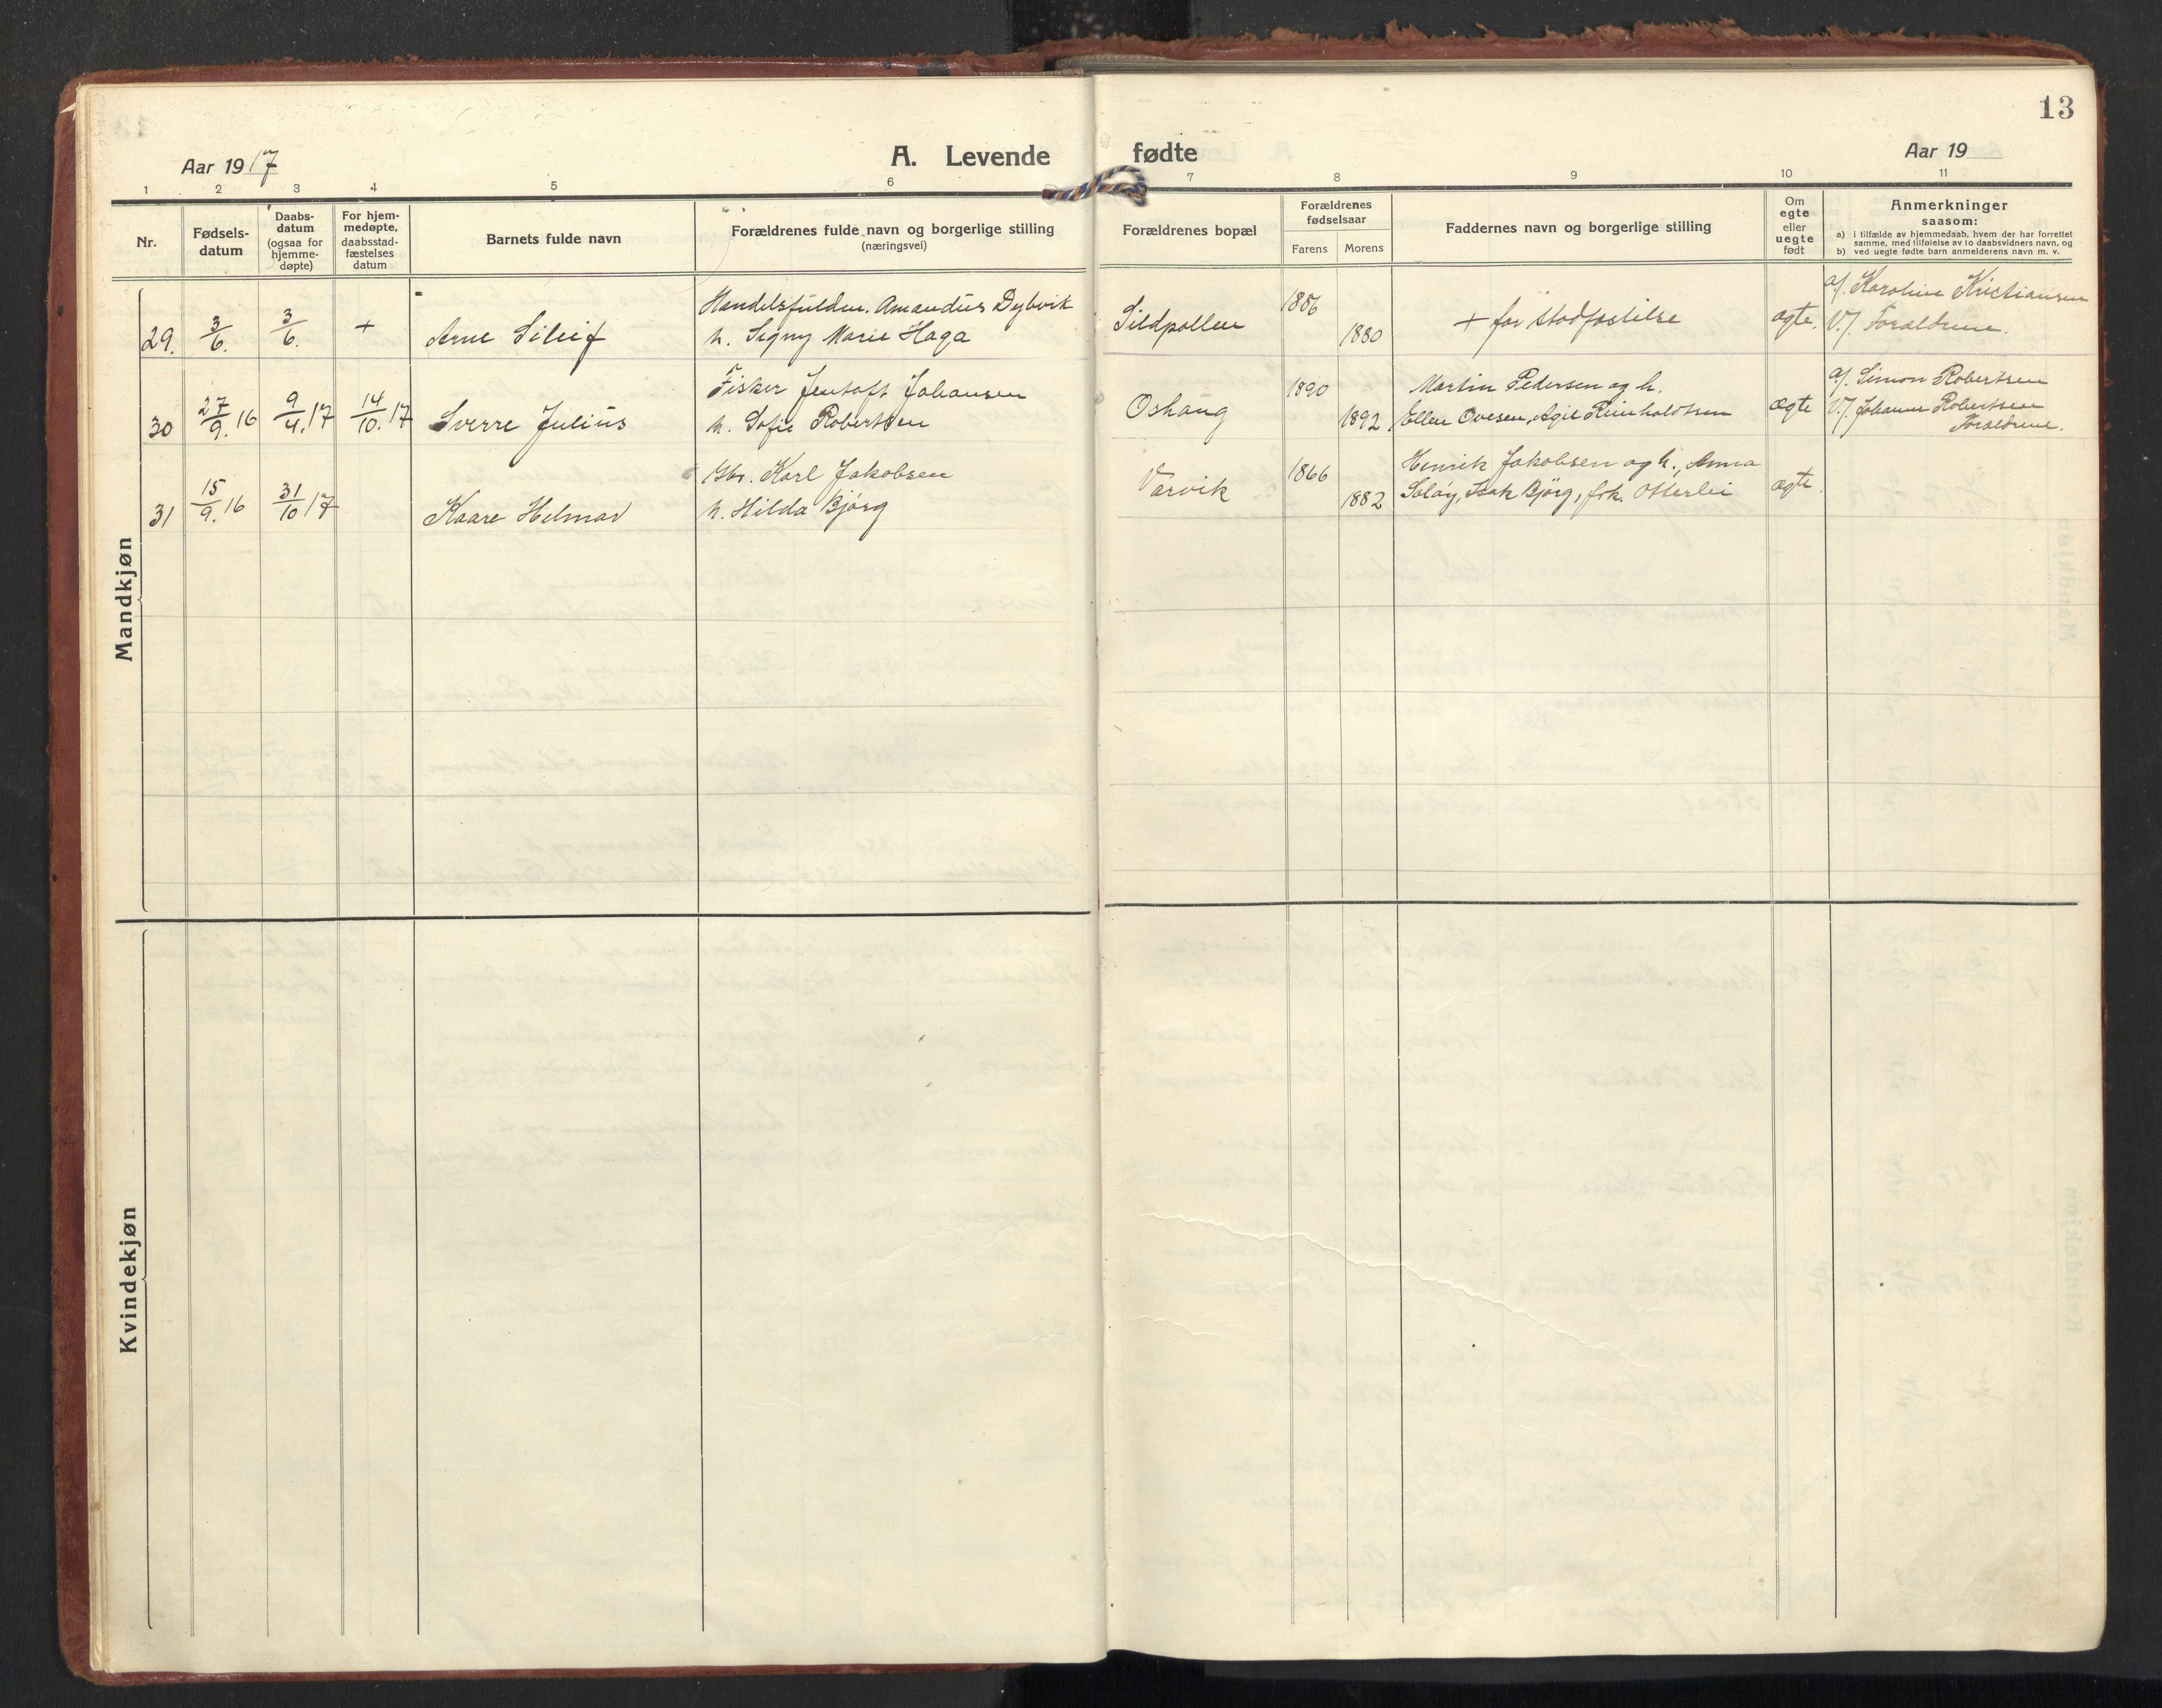 13
Aar 1917
A. Levende fødte
Aar 19
1 2 3 4 5 6 7 8 9 10 11
Nr.
Fødsels-
datum
Daabs-
datum
(ogsaa for
hjemme-
døpte)
For hjem-
medøpte,
daabsstad-
fæstelses
datum
Barnets fulde navn
Forældrenes fulde navn og borgerlige stilling
(næringsvei)
Forældrenes bopæl
Forældrenes
fødselsaar
Farens Morens
Faddernes navn og borgerlige stilling
Om
egte
eller
uegte
født
Anmerkninger
saasom:
a) i tilfælde av hjemmedaab, hvem der har forrettet
samme, med tilføielse av to daabsvidners navn, og
b) ved uegte fødte barn anmelderens navn m. v.
Mandkjøn
29. 3/6. 3/6. + Arne
Amandus Dybvik
h. Signy Marie Haga
Sildpollen
1886
1880
+ før stadfæstelse
ægte.
a). Karoline Kristiansen
V.). Forældrene.
30 27/9. 16 9/4. 17 14/10. 17 Sverre Julius
Fisker Jentoft Johansen
h. Sofie Robertsen
Oshaug
1890
1892
Martin Pedersen og h.
Ellen Ovesen, Reinholdtsen
ægte
a). Simon Robertsen
V.). Johanne Robertsen
Forældrene.
31 15/9. 16 31/10 17 Kaare Helmar
Gbr. Karl Jakobsen
h. Hilda Bjørg
Varvik
1866
1882
Henrik Jakobsen og h., Anna
Soløy, Isak Bjørg, frk. Otterlei
ægte
Kvindekjøn